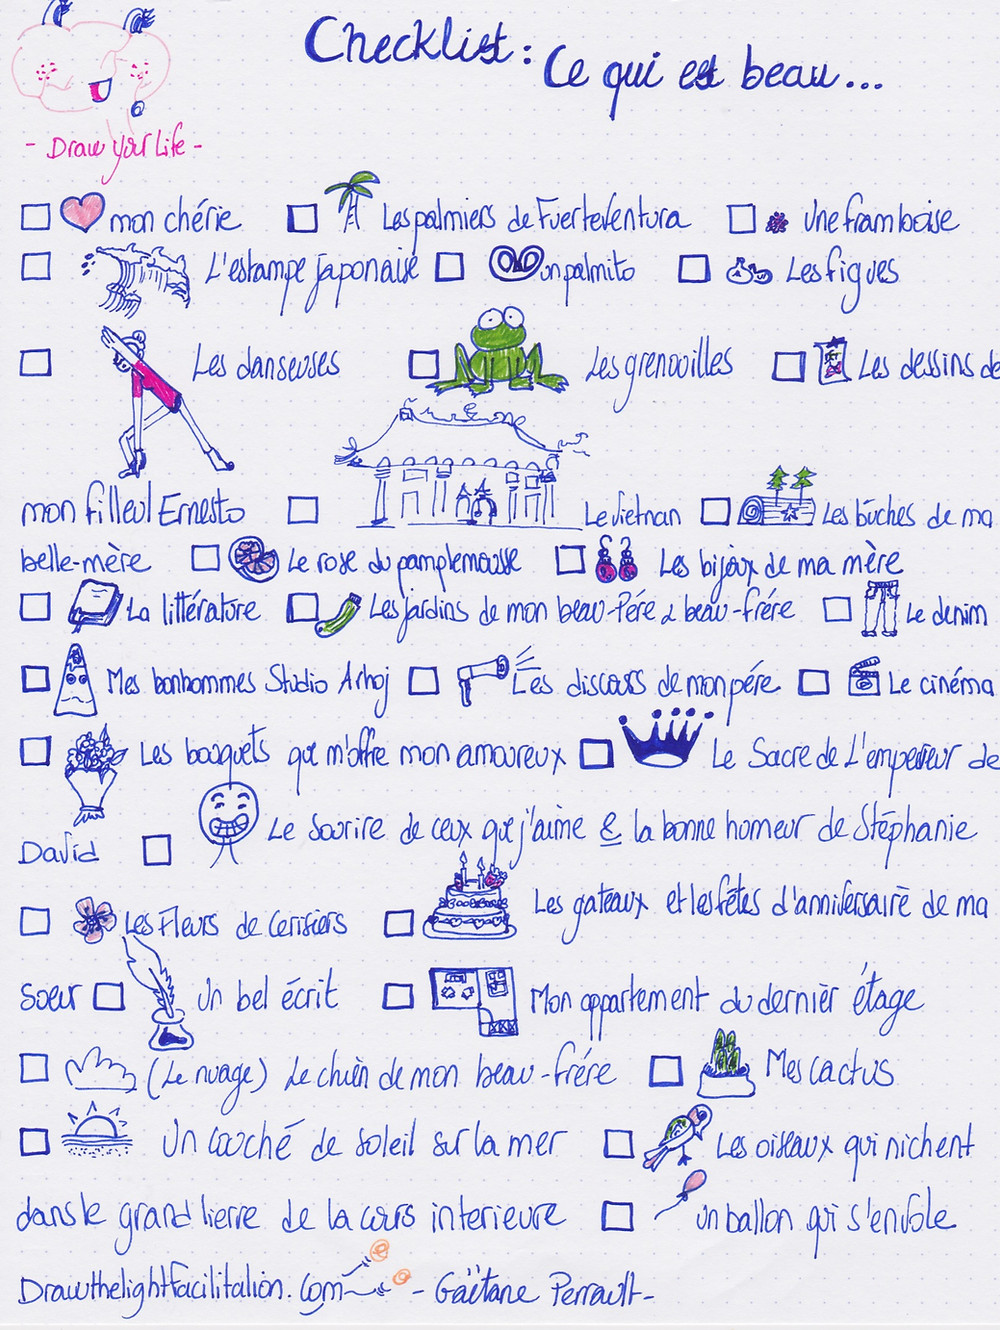 Checklist: Ce qui est beau...
- Draw your Life -
mon chérie Les palmiers de Fuerteventura Une framboise
L'estampe japonaise un palmito Les figues
Les danseuses Les grenouilles Les dessins de
mon filleul Ernesto Le Vietnan Les bûches de ma
belle-mère Le rose du pamplemousse Les bijoux de ma mère
La littérature Les jardins de mon beau-Père & beau-frère Le denim
Mes bonhommes Studio Arhoj Les discours de mon père Le cinéma
Les bouquets que m'offre mon amoureux Le Sacre de L'empereur de
David Le Sourire de ceux que j'aime & la bonne homeur de Stéphanie
Les Fleurs de Cerisiers Les gateaux et les fêtes d'anniversaire de ma
soeur Un bel écrit Mon appartement du dernier étage
(Le nuage) Le chien de mon beau-frère Mes cactus
Un couché de soleil sur la mer Les oiseaux qui nichent
dans le grand lierre de la cours interieure un ballon qui s'envole
Drawthelightfacilitation.com - Gaëtane Perrault-